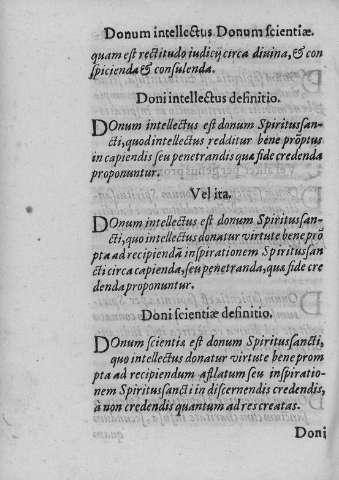 Donum intellectus Donum scientiæ.
quam est rectitudo iudicij circa diuina, & con
spicienda & consulenda.
Doni intellectus definitio.
DOnum intellectus est donum Spiritussan-
cti, quod intellectus redditur bene prõptus
in capiendis seu penetrandis quæ fide credenda
proponuntur.
Vel ita.
DOnum intellectus est donum Spiritussan-
cti, quo intellectus donatur virtute bene prõ
pta ad recipiendã inspirationem Spiritussan
cti circa capienda, seu penetranda, quæ fide cre
denda proponuntur.
Doni scientiæ definitio.
DOnum scientiæ est donum Spiritussancti,
quo intellectus donatur virtute bene prom
pta ad recipiendum afflatum seu inspiratio-
nem Spiritussancti in discernendis credendis,
à non credendis quantum ad res creatas.
Doni